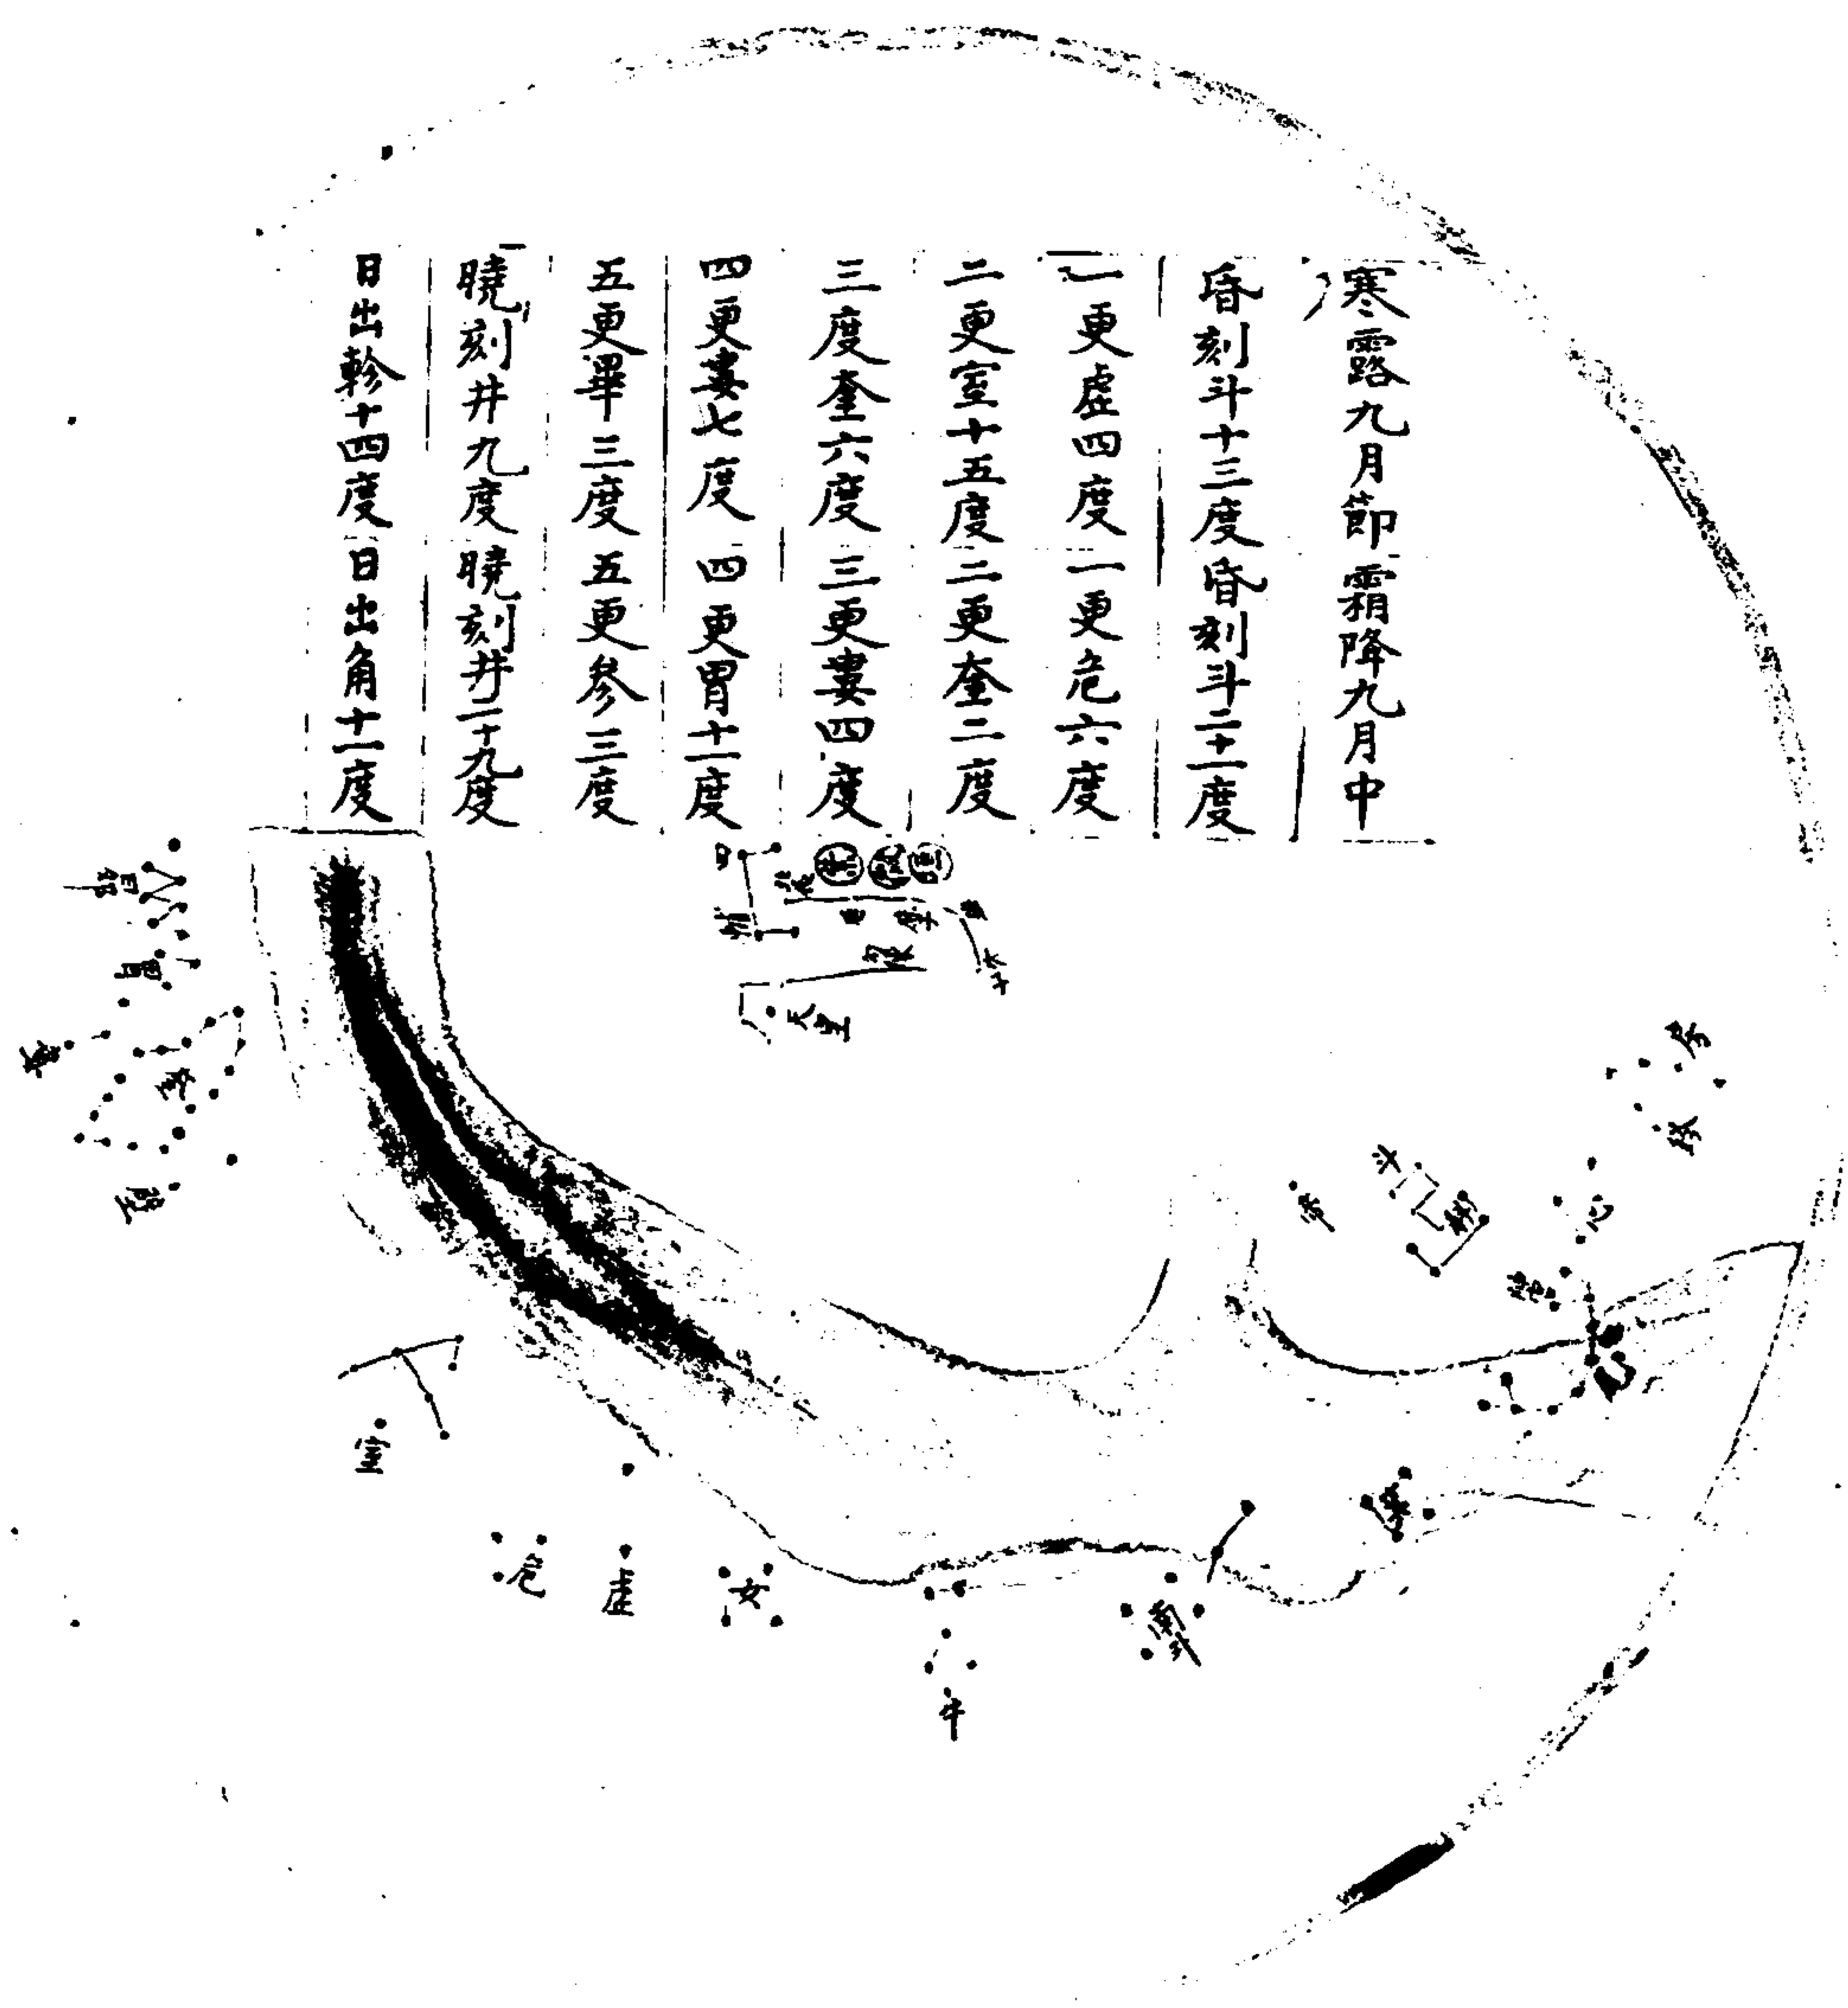 寒露九月節霜降九月中
昏刻斗十三度昏刻斗二十一度
一更虛四度一更危六度
二更室十五度二更奎二度
三度奎六度三更婁四度
四更婁七度四更胃十一度
五更畢三度五更參三度
曉刻井九度曉刻井二十九度
日出軫十四度日出角十一度
昴
胃
婁
奎
壁
室
危
虛
女
牛
南斗
箕
尾
心
房
氐
斗
帝
天皇